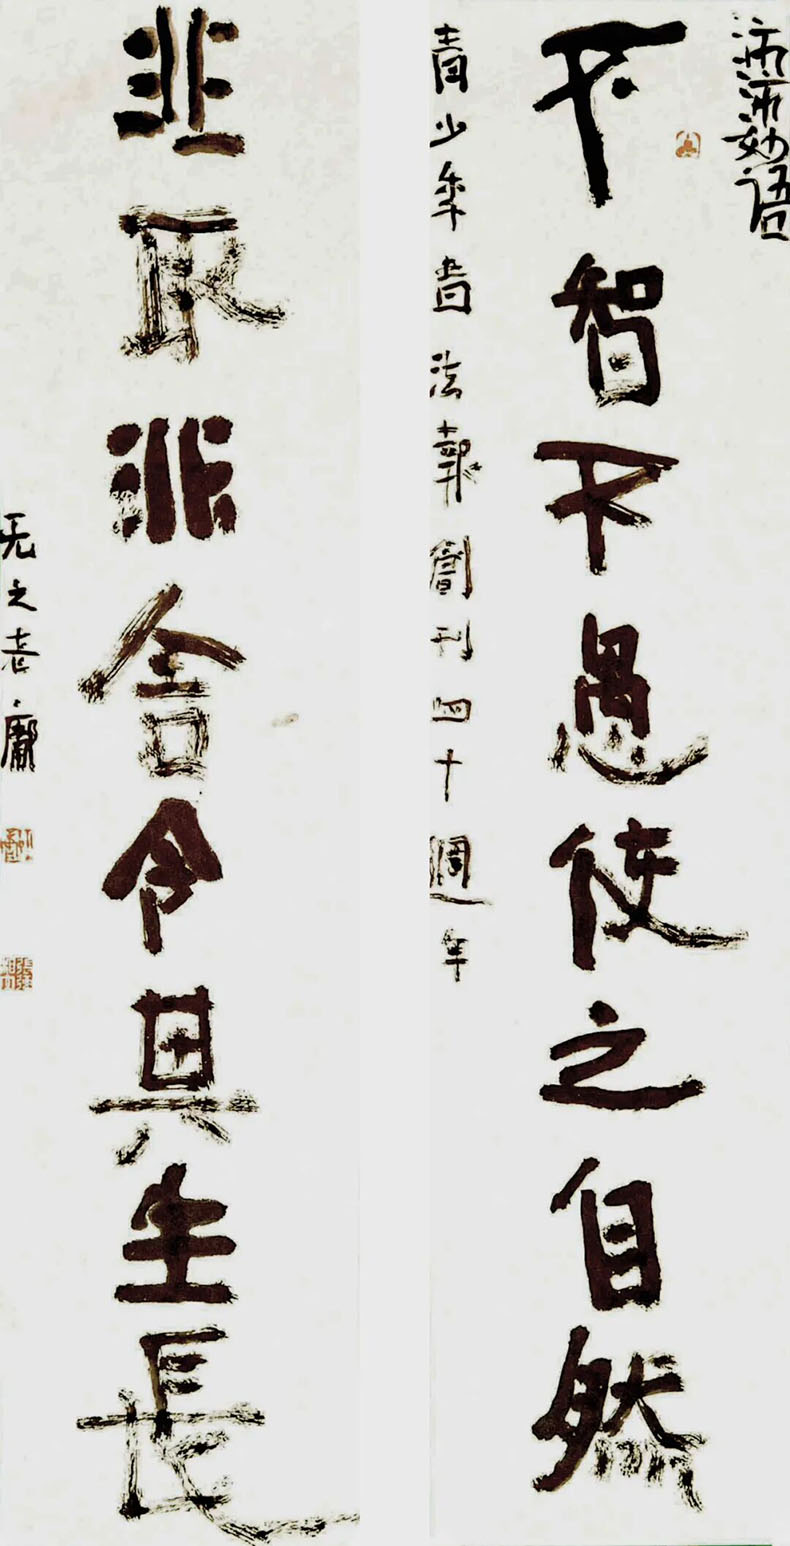 妙语
不智不愚使之自然
青少年書法報創刊四十週年
非取非舍令其生長
之老